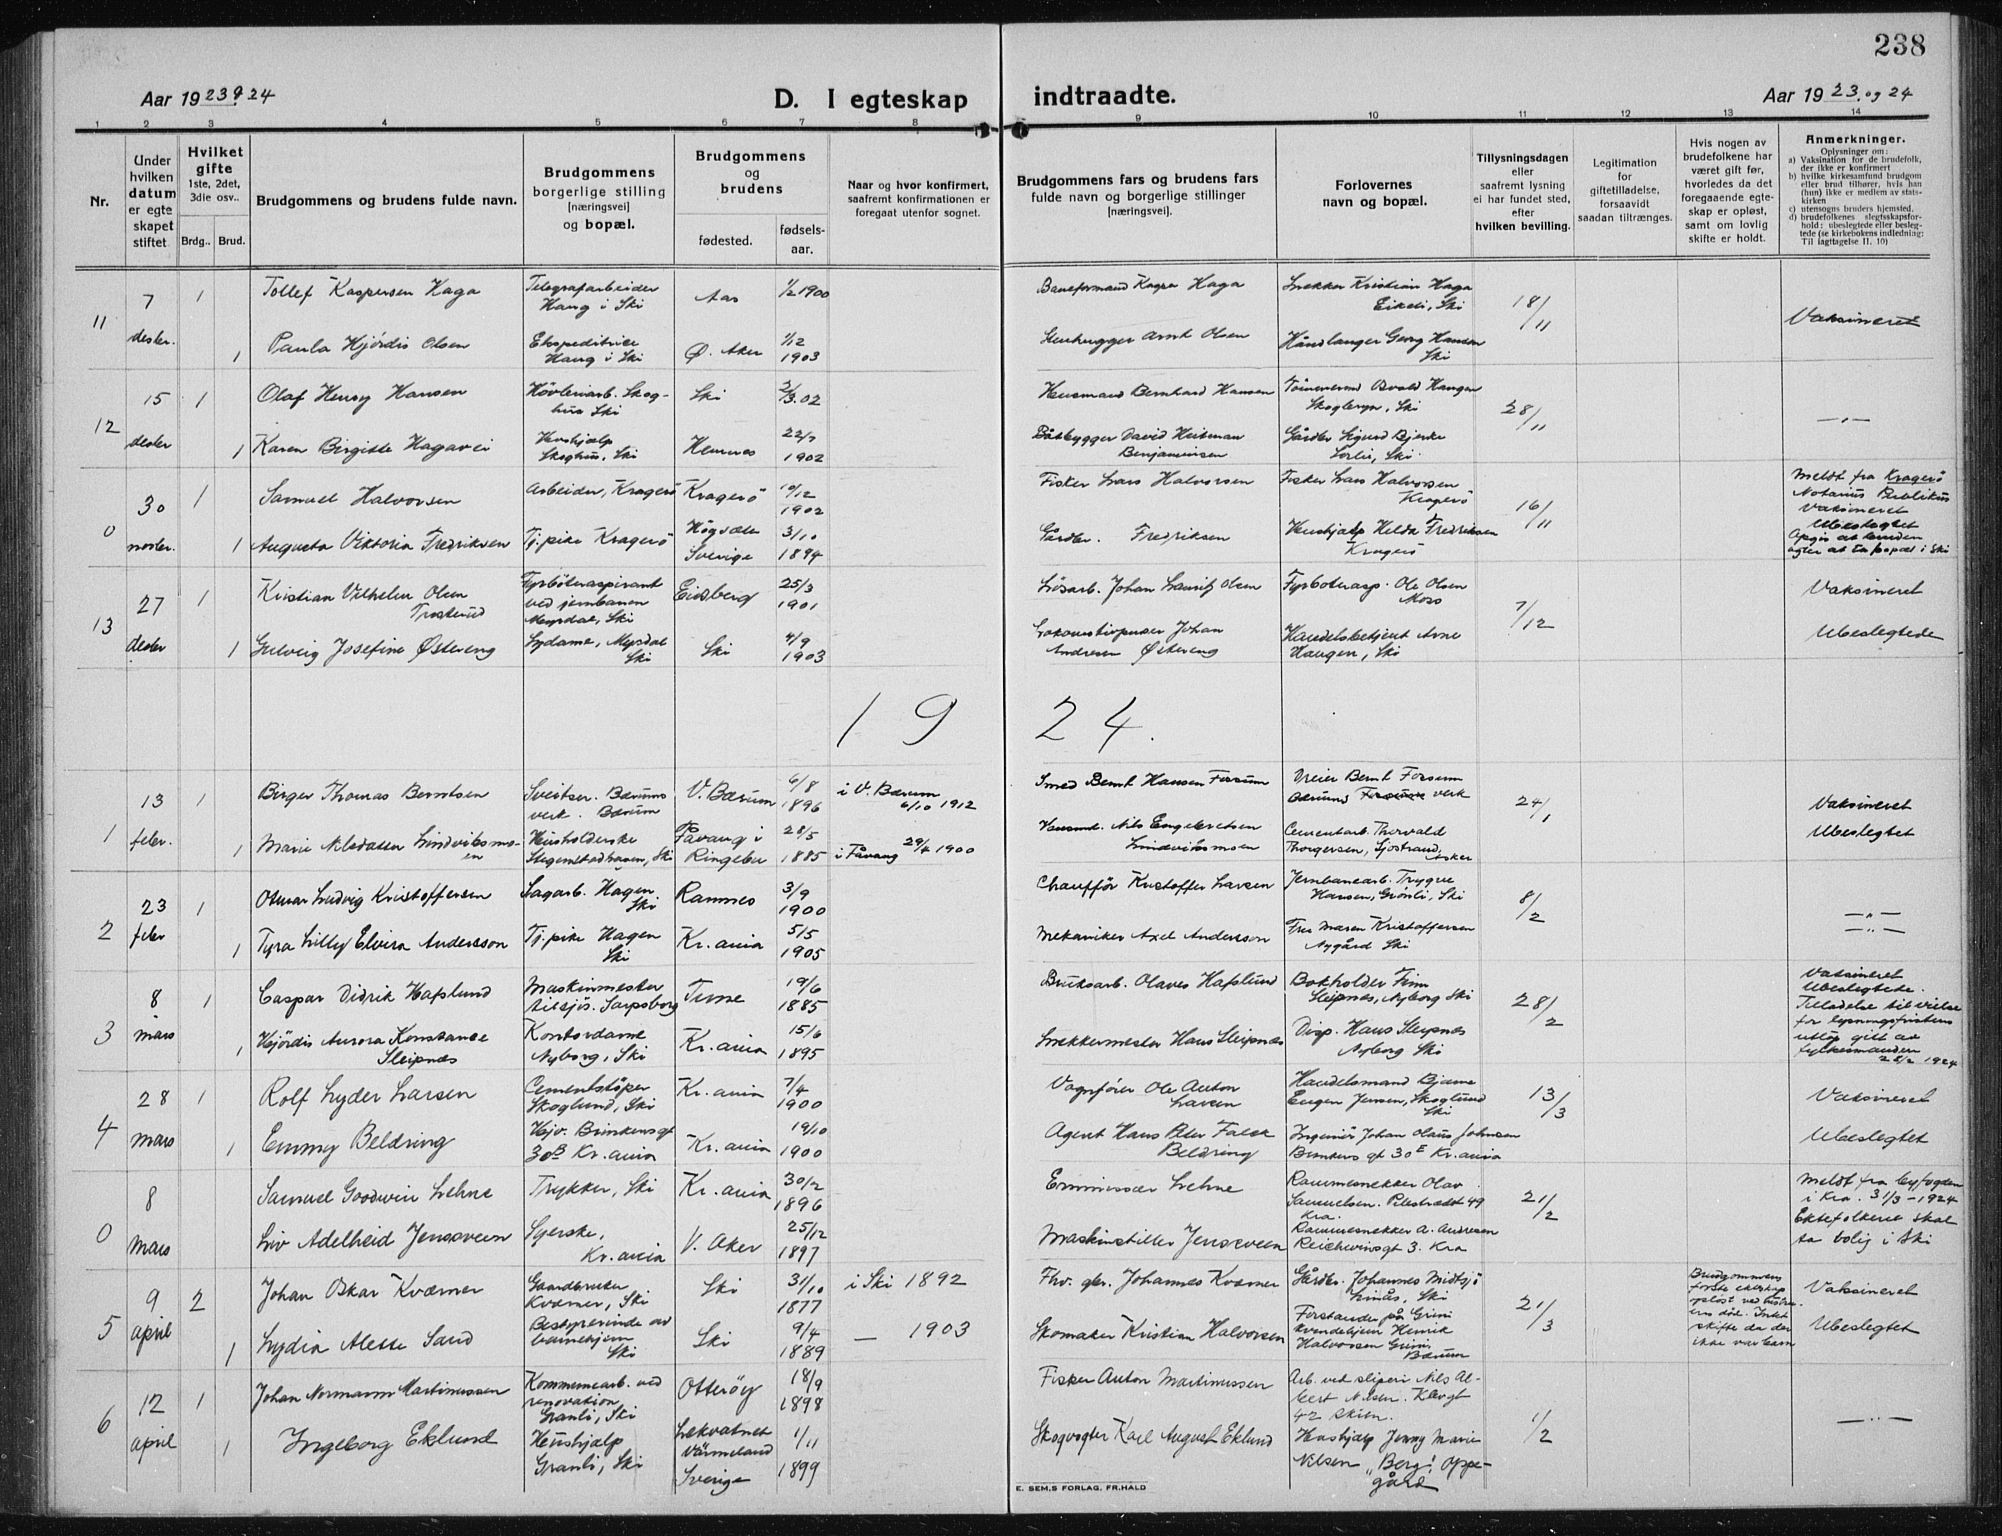 238
Aar 19 23 og 24
D. I egteskap
indtraadte.
Aar 19 23. og 24
1 2 3 4 5 6 7 8 9 10 11 12 13 14
Nr.
Under hvilken datum er egteskapet stiftet
Hvilket gifte 1ste, 2det, 3die osv..
Brdg.. Brud.
Brudgommens og brudens fulde navn.
Brudgommens borgerlige stilling [næringsvei] og bopæl.
Brudgommens og brudens
fødested.
fødsels-aar.
Naar og hvor konfirmert, saafremt konfirmationen er foregaat utenfor sognet.
Brudgommens fars og brudens fars fulde navn og borgerlige stillinger [næringsvei].
Forlovernes navn og bopæl.
Tillysningsdagen eller saafremt lysning ei har fundet sted, efter hvilken bevilling.
Legitimation for giftetilladelse, forsaavidt saadan tiltrænges.
Hvis nogen av brudefolkene har været gift før, hvorledes da det foregaaende egteskap er opløst, samt om lovlig skifte er holdt.
Anmerkninger.
Oplysninger om:
a) Vaksination for de brudefolk, der ikke er konfirmert
b) hvilke kirkesamfund brudgom eller brud tilhører, hvis han (hun) ikke er medlem av statskirken
c) utensogns bruders hjemsted,
d) brudefolkenes slegtsskapsforhold: ubeslegtede eller beslegtede (se kirkebokens indledning: Til iagttagelse II. 10)
11 7 desbr. 1 Tollef Kaspersen Haga Telegrafarbeider Haug i Ski Aas 1/2 1900 Baneformand Kasper Haga Snekker Kristian Haga Eikeli, Ski 18/11 Vaksineret
1 Paula Hjördis Olsen Ekspeditrice Haug i Ski Ø. Aker 1/12 1903 Stenhugger Arnt Olsen Håndlanger Georg Hansen Ski
12 15 desbr 1 Olaf Henry Hansen Høvleriarb. Skoghus Ski Ski 2/3.02 Husmand Bernhard Hansen Osvald Haugen Ski 28/11 — " —
1 Karen Birgitte Hagavei Hushjælp Skoghus, Ski Hemnes 22/7 1902 Båtbygger David Heitman Benjaminsen Gårdbr Sigurd Bjerke Sorli, Ski.
0 30 novbr. 1 Samuel Halvorsen Arbeider, Kragerö Kragerö 10/12 1902 Fisker Lars Halvorsen Fisker Lars Halvorsen Kragerö 16/11 Meldt fra Kragerö Notarius Publikus Vaksineret Ubeslegtet
1 Augusta Viktoria Fredriksen Tj.pike Kragerö Sverige 3/10 1894 Gårdbr. Fredriksen Hushjælp Helda Fredriksen Kragerö Opgis at bruden agter at ta bopæl i Ski
13 27 desbr 1 Kristian Vilhelm Olsen Trosterud Fyrböteraspirant ved jernbanen Myrdal, Ski Eidsberg 25/3 1901 Løsarb. Johan Lauritz Olsen Fyrböterasp. Ole Olsen Moss 7/12 Vaksineret
1 Gulveig Josefine Østereng Sydame, Myrdal Ski Ski 4/9 1903 Johan Andresen Østereng Handelsbetjent Arne Haugen, Ski Ubeslegtede
1 9 2 4.
1 13 febr. 1 Birger Thomas Berntsen Sveitser. Bærums verk. Bærum V. Bærum 6/8 1896 i V. Bærum 6/10 1912 Smed Bernt Hansen Fossum Bernt Fossum Bærums Fossum verk 24/1 Vaksineret
1 Marie Husholderske Ski Fåvang i Ringebu 28/5 1885 i Fåvang 29/4 1900 Nils Engebretsen Cementarb. Thorvald Thorgersen, Sjöstrand, Asker Ubeslegtet
2 23 febr 1 Otmar Ludvig Kristoffersen Sagarb. Hagen Ski Ramnes 3/9 1900 Chauffør Kristoffer Larsen Jernbanearb. Trygve Hansen, Grønli, Ski 8/2 — " —
1 Tyra Lilly Elvira Andersson Tj.pike Hagen Ski Kr.ania 5/5 1905 Mekaniker Axel Andersson Fru Maren Kristoffersen Nygård Ski — " —
3 8 mars 1 Caspar Didrik Hafslund Maskinmester Sarpsborg Tune 19/6 1885 Bruksarb. Olaves Hafslund Bokholder Finn Sleipnæs, Nyborg Ski 28/2 Vaksineret Ubeslegtede. Tilladelse til vielse før lysningsfristens utløp gitt av fylkesmanden 28/2 1924
1 Hjördis Aurora Konstance Sleipnæs Kontordame Nyborg, Ski Kr.ania 15/6 1895 Snekkermester Hans Sleipnæs Disp. Hans Sleipnæs Nyborg Ski
4 28 mars 1 Rolf Lyder Larsen Cementstöper Skoglund, Ski Kr.ania 7/4 1900 Vognfører Ole Anton Larsen Handelsmand Bjarne Eugen Jensen, Skoglund Ski 13/3 Vaksineret
1 Emmy Beldring 30B Kr.ania Kr.ania 19/10 1900 Agent Hans Peter Falck Beldring Ingeniör Johan Olaus Johnsen 30E Kr.ania Ubeslegtet
0 8 mars Samuel Goodwin Lehne Trykker, Ski Kr.ania 30/2 1896 Emmissær Lehne Rammesnekker Olav Samuelsen. Pilestrædet 49 Kra. 21/2 Meldt fra byfogden i Kra. 31/3-1924
Liv Adelheid Jensveen Syerske, Kr.ania V. Aker 25/12 1897 Maskinstiller Jensveen Rammesnekker A. Andresen 3. Kra Ektefolkene skal ta bolig i Ski
5 9 april 2 Johan Oskar Kværner Gaardbruker Kværner, Ski Ski 31/10 1877 i Ski 1892 Fhv. gbr. Johannes Kværner Gårdbr. Johannes Midtsjö Ski 21/3 Brudgommens første ekteskap opløst ved hustruens död. Intet skifte da der ikke var barn Vaksineret
1 Lydia Alette Sand Bestyrerinde av barnehjem Ski Ski 9/4 1889 — 1903 Skomaker Kristian Halvorsen Forstander på Grini kvindehjem Henrik Halvorsen Grini Bærum Ubeslegtet
6 12 april 1 Johan Normann Martinussen Kommunearb. ved renovation Granli, Ski Otteröy 18/9 1898 Fisker Anton Martinussen Arb. ved sliperi Nils Albert Nilsen. 42 Skien. 1/2 — " —
1 Ingeborg Eklund Hushjælp Granli, Ski Lekvatnet Värmeland Sverige 1/11 1899 Skogvogter Karl August Eklund Hushjælp Jenny Marie Nilsen "Berg", Oppegård
E. SEM,S FORLAG, FR.HALD